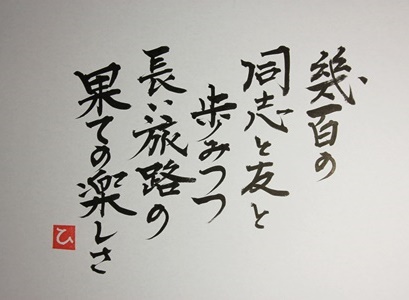 幾百の
同志と友と
歩みつつ
長い旅路の
果ての楽しさ
ひ